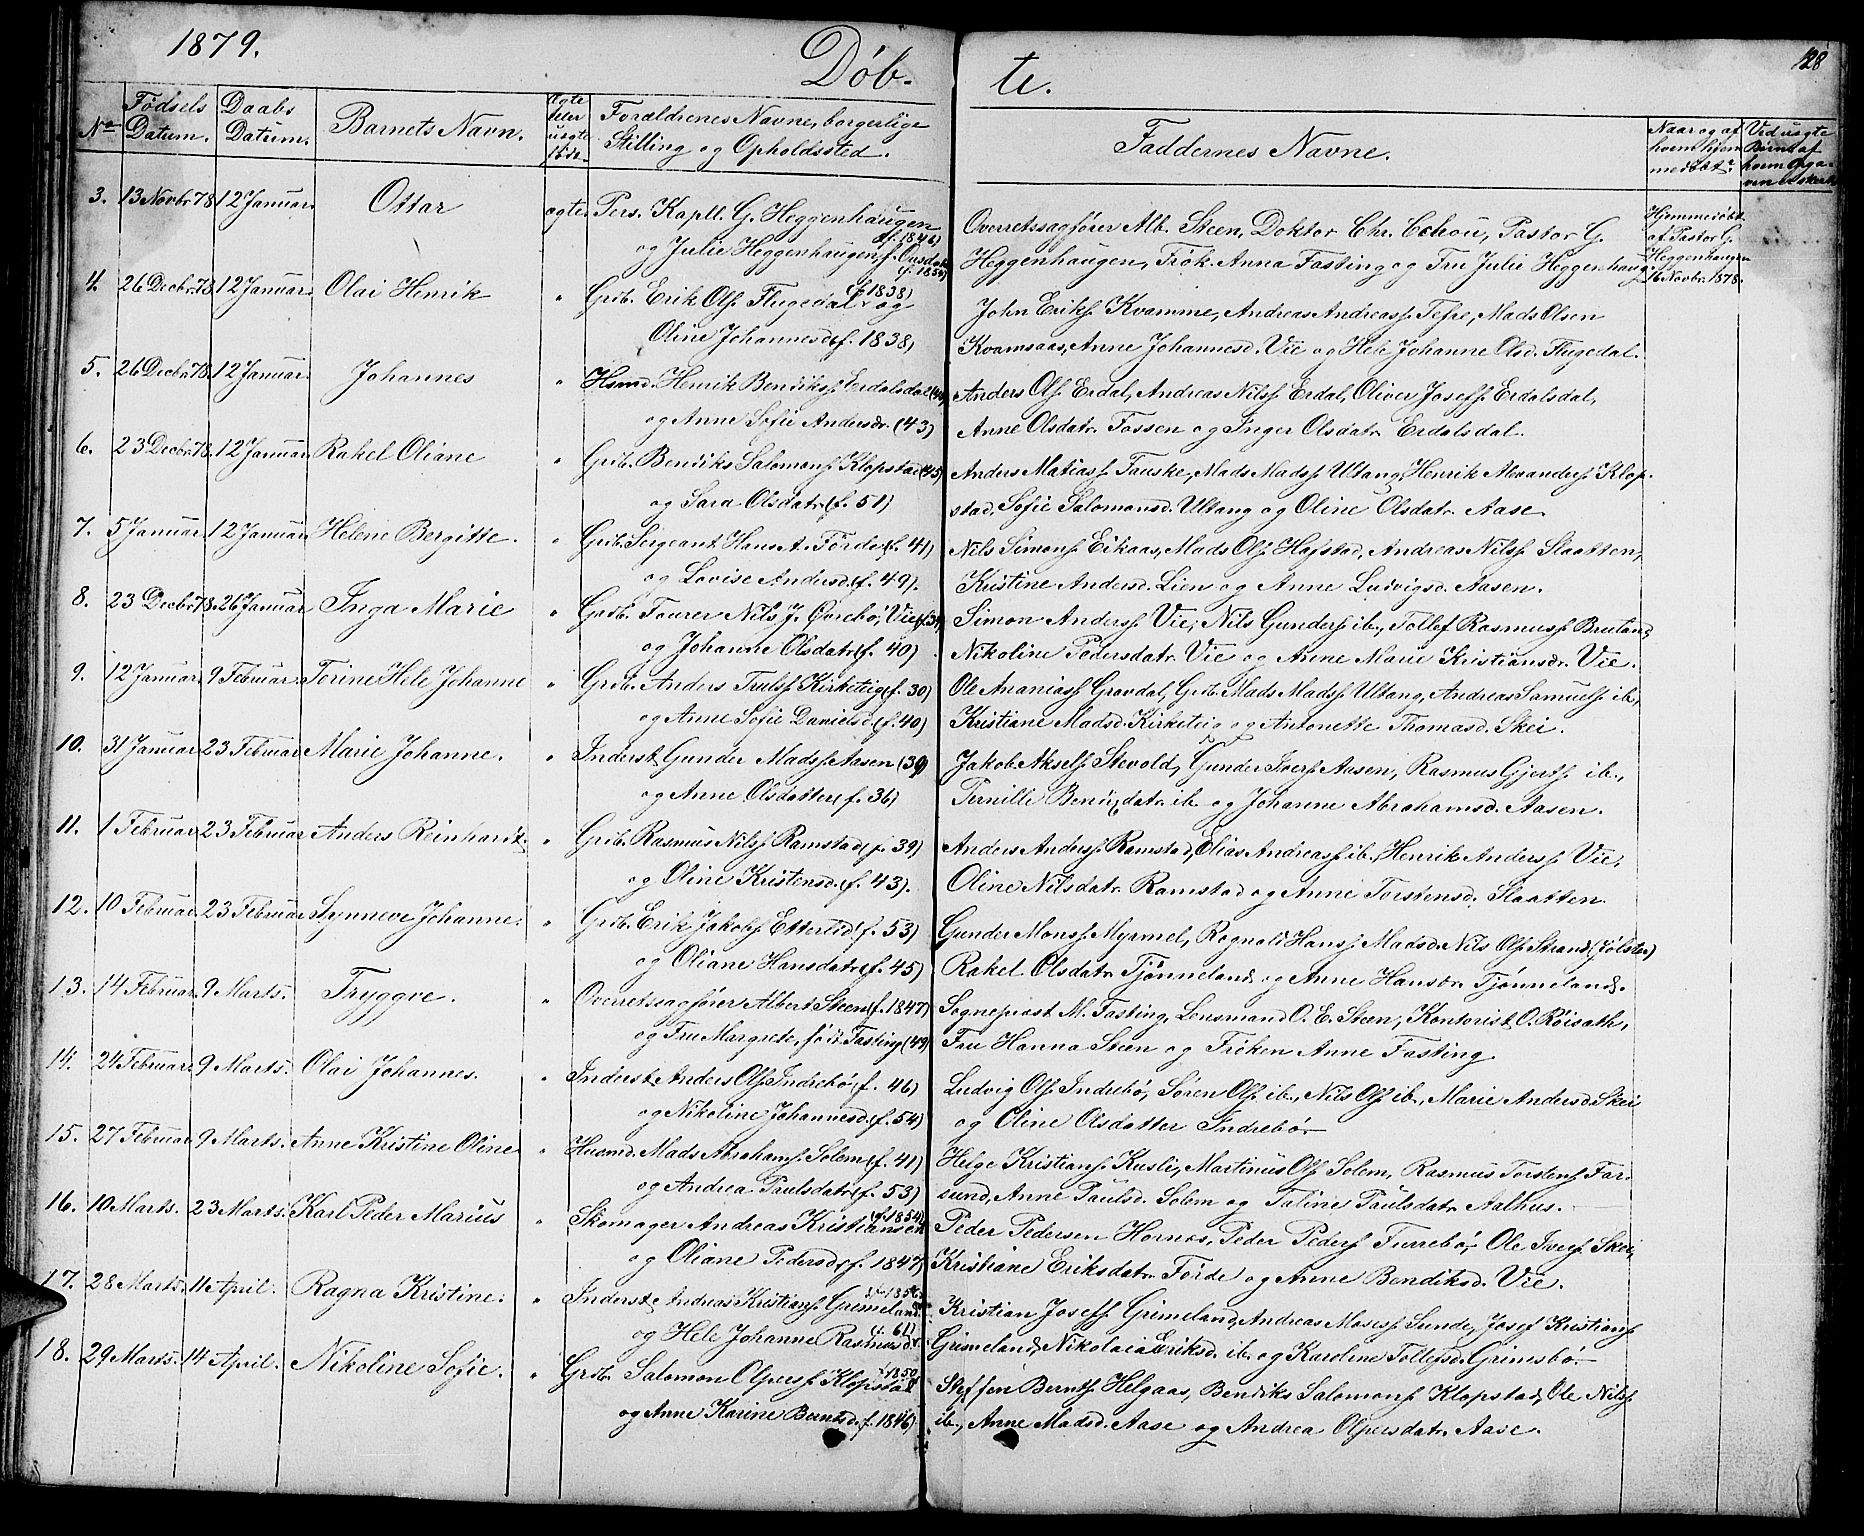 1879. Døb- te. 128
No Fødsels Datum. Daabs Datum. Barnets Navn. Ægte eller uægte Forældrenes Navne, borgerlige Stilling og Opholdssted. Faddernes Navne. Naar og af hvem hjem- medøbt? Ved uægte Børn: af hvem Opga-
3. 13 Novbr 78. 12 Januar. Ottar ægte. Pers. Kapll. G. Heggenhaugen (f. 1846) Overretssagfører Alb. Steen, Doktor Chr. Pastor G. Hjemmedøbt
og Julie Heggenhaugen, f. (f. 1854) Heggenhaugen, Frøk. Anna Fasting og Fru Julie Heggenhaugen af Pastor G. Heggenhaugen 16 Novbr. 1878.
4. 26 Decbr 78. 12 Januar. Olai Henrik " Grdb. Erik Ols. Flugedal (f. 1838) og John Eriks. Kvamme, Andreas Andreass. Tefre, Mads Olsen
Oline Johannesd. (f. 1838) Kvamsaas, Anne Johannesd. Vie og Hele Johanne Olsd. Flugedal.
5. 26 Decbr 78. 12 Januar. Johannes " Hsmd. Henrik Bendikss. Erdalsdal (44) Anders Ols. Erdal, Andreas Nilss. Erdal, Oliver Josefs. Erdalsdal,
og Anne Sofie Andersdr. (43) Anne Olsdatr. Fossen og Inger Olsdatr. Erdalsdal.
6. 23 Decbr 78. 12 Januar. Rakel Oliane " Grdb. Bendiks Salomons. Klopstad (45) Anders Matiass. Tauske, Mads Madss. Ultang, Henrik Alexanders. Klop-
og Sara Olsdatr. (f. 51) stad, Sofie Salomonsd. Ultang og Oline Olsdatr. Aase.
7. 5 Januar. 12 Januar. Helene Bergitte. " Grdb. Sergeant Hans A. Førde (f. 41) Nils Simons. Eikaas, Mads Ols. Hafstad, Andreas Nilss. Slaatten,
og Lovise Andersd. (f. 49). Kristine Andersd. Lien og Anne Ludvigsd. Aasen.
8. 23 Decbr 78. 26 Januar. Inga Marie " Grdb. Fourer Nils J. Øvrebø, Vie (f. 34) Simon Anderss. Vie, Nils Gunders. ib., Tollef Rasmuss. Bruland,
og Johanne Olsdatr. (f. 40) Nikoline Pedersdatr. Vie og Anne Marie Kristiansdr. Vie.
9. 12 Januar. 9 Februar. Torine Hele Johanne " Grdb. Anders Trulss. Kirketeig (f. 30) Ole Ananiass. Gravdal, Grdb. Mads Madss. Ultang, Andreas Samuels. ib.,
og Anne Sofie Danielsd. (f. 40) Kristiane Madsd. Kirketeig og Antonette Thomasd. Skei.
10. 31 Januar. 23 Februar. Marie Johanne. " Inderst Gunder Madss. Aasen (39) Jakob Aksels. Stevold, Gunder Ivers. Aasen, Rasmus Gjerts. ib.,
og Anne Olsdatter (f. 36) Pernille ib. og Johanne Abrahamsd. Aasen.
11. 1 Februar. 23 Februar. Anders Reinhardt. " Grdb. Rasmus Nilss. Ramstad (f. 39) Anders Anderss. Ramstad, Elias Andreass. ib., Henrik Anderss. Vie,
og Oline Kristensd. (f. 43). Oline Nilsdatr. Ramstad og Anne Torstensd. Slaatten.
12. 10 Februar. 23 Februar. Synneve Johanne. " Grdb. Erik Jakobs. Etterlid (f. 53) Gunder Monss. Myrmel, Ragnald Hanss. Nils Ols. Strand (Jølster)
og Oliane Hansdatr. (f. 45) Rakel Olsdatr. Tjønneland og Anne Hansdr. Tjønneland.
13. 14 Februar. 9 Marts. Tryggve. " Overretssagfører Albert Steen (f. 1847) Sogneprost M. Fasting, Lensmand O. E. Steen, Kontorist O. Røisath,
og Fru Margrete, født Fasting (49) Fru Hanna Steen og Frøken Anne Fasting.
14. 24 Februar. 9 Marts. Olai Johannes. " Inderst Anders Ols. Indrebø (f. 46) Ludvig Ols. Indrebø, Søren Ols. ib., Nils Ols. ib., Marie Andersd. Skei
og Nikoline Johannesd. (f. 54) og Oline Olsdatter Indrebø.
15. 27 Februar. 9 Marts. Anne Kristine Oline " Husmd. Mads Abrahams. Solem (f. 41) Helge Kristians. Kusli, Martinus Ols. Solem, Rasmus Torstens. Far-
og Andrea Paulsdatr. (f. 53) sund, Anne Paulsd. Solem og Taline Paulsdatr. Aalhus.
16. 10 Marts. 23 Marts. Karl Peder Marius " Skomager Andreas Kristiansen (f. 1854) Peder Pedersen Hornes, Peder Peders. Furrebø, Ole Ivers. Skei,
og Oliane Pedersd. (f. 1847) Kristiane Eriksdatr. Førde og Anne Bendiksd. Vie.
17. 28 Marts. 11 April. Ragna Kristine. " Inderst Andreas Kristians. Grimeland Kristian Josefs. Grimeland, Andreas Moses. Sunde, Josef Kristians.
og Hele Johanne Rasmusd. (f. 61) Grimeland, Nikolaia Eriksd. ib. og Karoline Tollefsd. Grimsbø.
18. 29 Marts. 14 April. Nikoline Sofie. " Grdb. Salomon Olpers. Klopstad (f. 1850) Steffen Bernts. Helgaas, Bendiks Salomons. Klopstad, Ole Nilss.
og Anne Karine Berntsd. (f. 1846) ib., Anne Madsd. Aase og Andrea Olpersdatr. Aase.